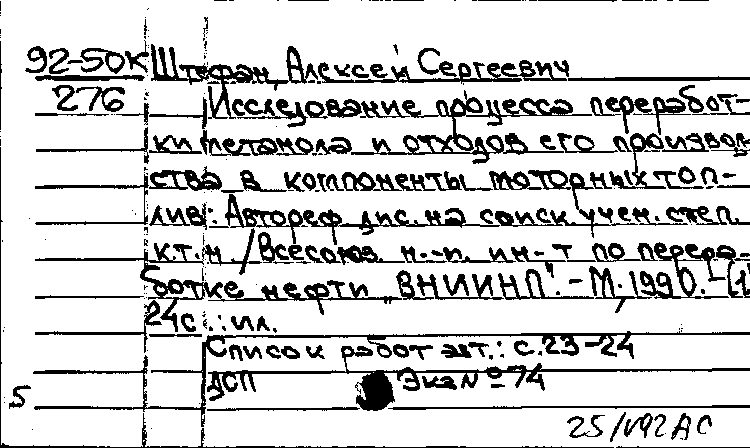 92-50К Штефан, Алексей Сергеевич
276 Исследование процесса переработ-
ки метанола и отходов его производ-
ства в компоненты моторных топ-
лив: Автореф. дис. на соиск. учен. степ.
к.т.н. / Всесоюз. н.-и. ин-т по перера-
ботке нефти "ВНИИНП". - М., 1990. -
24с.: ил.
Список работ авт.: с.23-24
ДСП Экз № 74
5